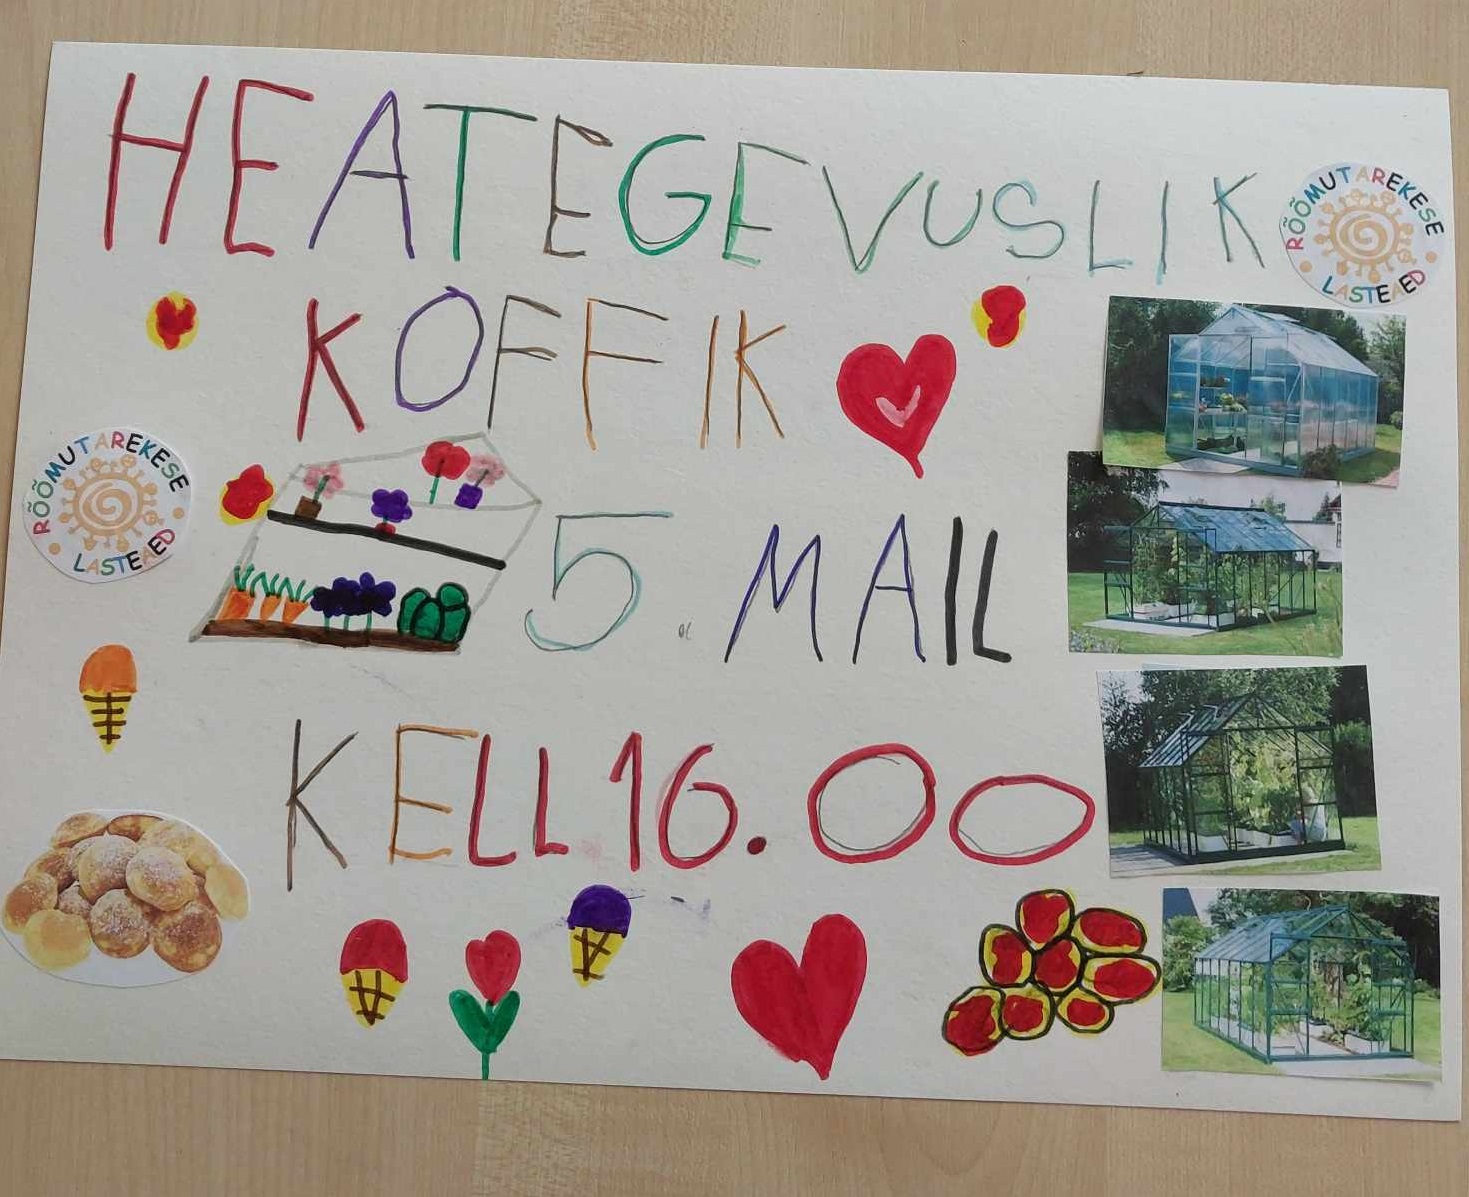 HEATEGEVUSLIK
RÕÕMUTAREKESE
LASTEAED
KOFFIK
RÕÕMUTAREKESE
LASTEAED
5. MAIL
KELL 16.00